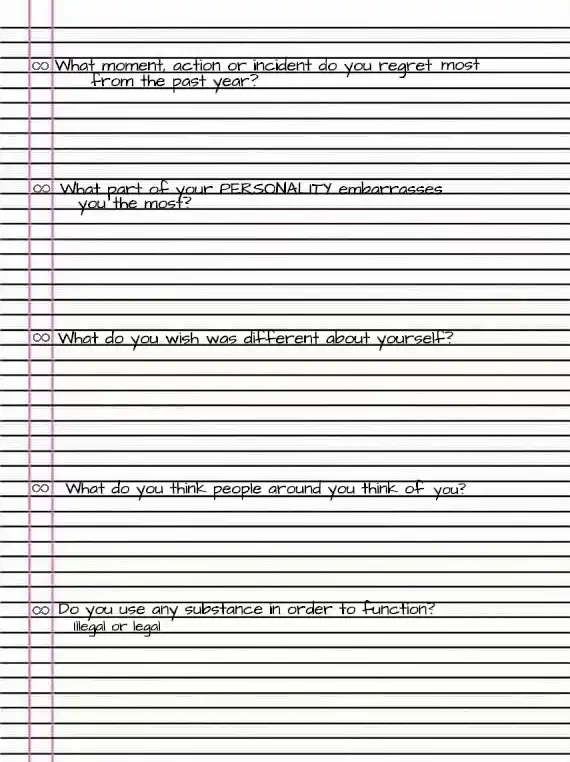 ∞ What moment, action or incident do you regret most
from the past year?
∞ What part of your PERSONALITY embarrasses
you the most?
∞ What do you wish was different about yourself?
∞ What do you think people around you think of you?
∞ Do you use any substance in order to function?
illegal or legal